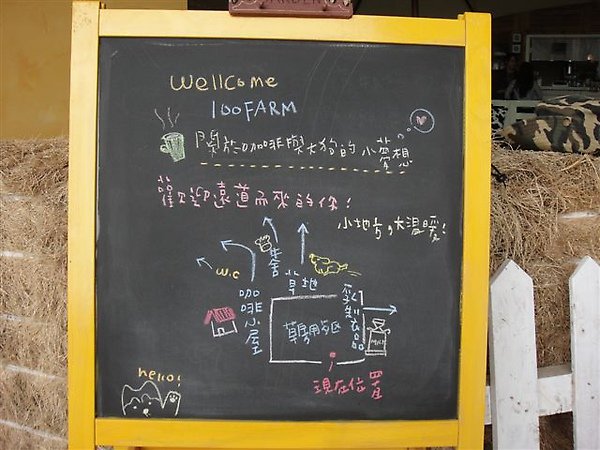 Wellcome
100FARM
關於咖啡與大狗的小夢想
歡迎遠道而來的你!
小地方,大溫暖!
W.C
牛舍
草地
咖啡小屋
乳製品
MILK
現在位置
hello!